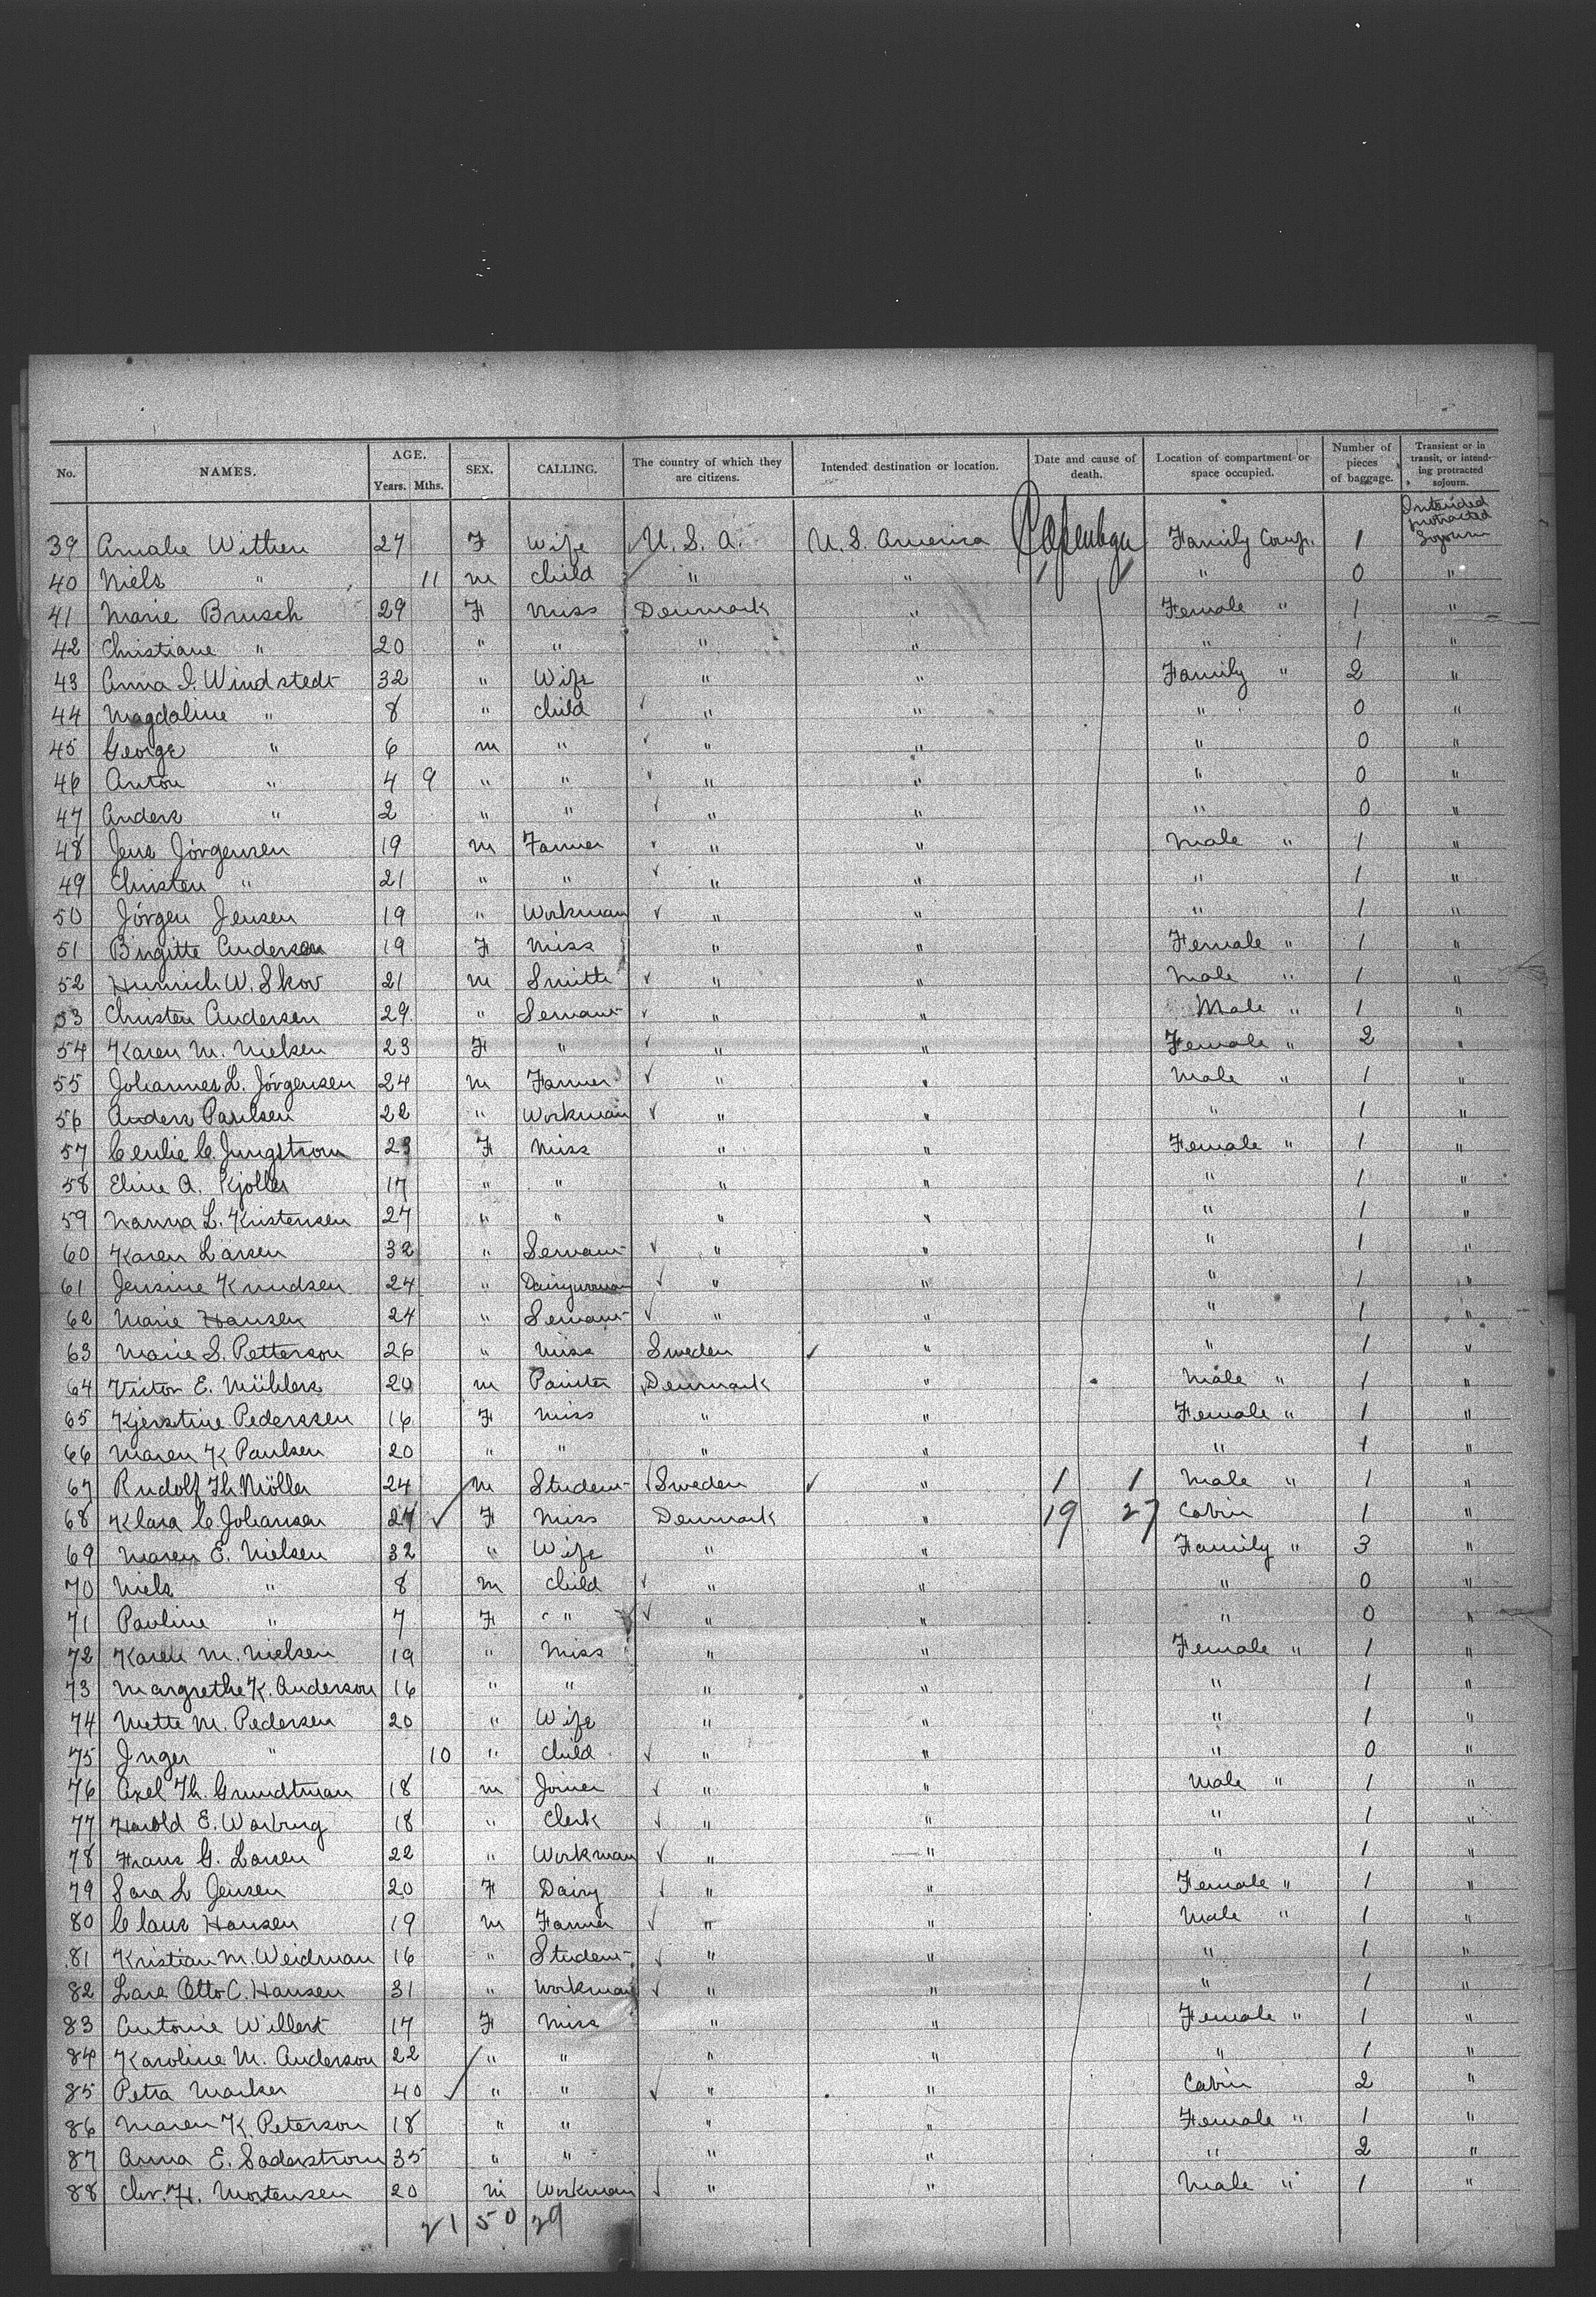 No. NAMES. AGE. Years. Mths. SEX. CALLING. The country of which they are citizens. Intended destination or location. Date and cause of death. Location of compartment or space occupied. Number of pieces of baggage. Transient or in transit, or intending protracted sojourn.
39 Amalie Wittren 27 F Wife U. S. A. U. S. America Family Comp. 1 Intended protracted Sojourn
40 Niels " 11 m child " " " 0 "
41 Marie Brusch 29 F Miss Denmark " Female " 1 "
42 Christiane " 20 " " " " " 1 "
43 Anna S. Windstedt 32 " Wife " " Family " 2 "
44 Magdaline " 8 " child " " " 0 "
45 George " 6 m " " " " 0 "
46 Anton " 4 9 " " " " " 0 "
47 Anders " 2 " " " " " 0 "
48 Jens Jörgensen 19 m Farmer " " Male " 1 "
49 Christen " 21 " " " " " 1 "
50 Jörgen Jensen 19 " Workman " " " 1 "
51 Birgitte Andersen 19 F Miss " " Female " 1 "
52 Heinrich W. Skov 21 m Smitte " " Male " 1 "
53 Christen Andersen 29 " Servant " " Male " 1 "
54 Karen M. Nielsen 23 F " " " Female " 2 "
55 Johannes L. Jörgensen 24 m Farmer " " Male " 1 "
56 Anders Paulsen 22 " Workman " " " 1 "
57 C. Jungstrom 23 F Miss " " Female " 1 "
58 Eline A. Kjoller 17 " " " " " 1 "
59 Nanna L. Kristensen 27 " " " " " 1 "
60 Karen Larsen 32 " Servant " " " 1 "
61 Jensine Knudsen 24 " Dairywoman " " " 1 "
62 Marie Hansen 24 " Servant " " " 1 "
63 Marie S. Petterson 26 " Miss Sweden " " 1 "
64 Victor E. Mühlers 20 m Painter Denmark " Male " 1 "
65 Kjerstine Pederssen 16 F Miss " " Female " 1 "
66 Maren K Paulsen 20 " " " " " 1 "
67 Rudolf Th Möller 24 m Student Sweden " 1 1 Male " 1 "
68 Klara C Johansen 24 F Miss Denmark " 19 27 Cabin 1 "
69 Maren E. Nielsen 32 " Wife " " Family " 3 "
70 Niels " 8 m child " " " 0 "
71 Pauline " 7 F " " " " 0 "
72 Karen M. Nielsen 19 " Miss " " Female " 1 "
73 Margrethe K. Anderson 16 " " " " " 1 "
74 Mette M. Pedersen 20 " Wife " " " 1 "
75 Inger " 10 " child " " " 0 "
76 Axel Th. Grundtman 18 m Joiner " " Male " 1 "
77 Harold E. Warburg 18 " Clerk " " " 1 "
78 Frans G. Larsen 22 " Workman " " " 1 "
79 Sara L Jensen 20 F Dairy " " Female " 1 "
80 Claus Hansen 19 m Farmer " " Male " 1 "
81 Kristian M. Weidman 16 " Student " " " 1 "
82 Lars Otto C. Hansen 31 " Workman " " " 1 "
83 Antonie Willert 17 F Miss " " Female " 1 "
84 Karoline M. Anderson 22 " " " " " 1 "
85 Petra Marker 40 " " " " Cabin 2 "
86 Maren K. Peterson 18 " " " " Female " 1 "
87 Anna E. Saderstrom 35 " " " " " 2 "
88 Chr. H. Mortensen 20 m Workman " " Male " 1 "
21 50 29